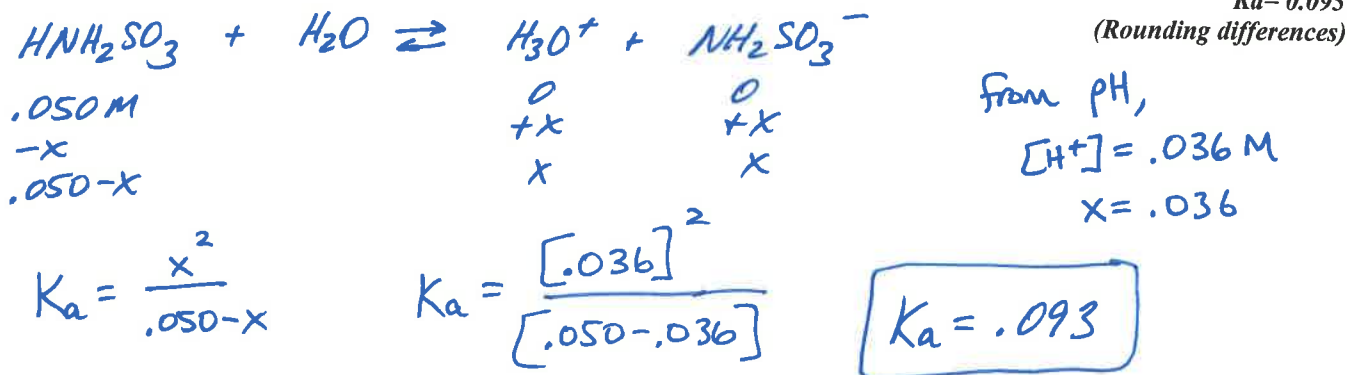 Ka= 0.095
(Rounding differences)
HNH₂SO₃ + H₂O ⇌ H₃O⁺ + NH₂SO₃⁻
.050M 0 0
-x +x +x
.050-x x x
from pH,
[H+] = .036 M
x= .036
Ka = x² / .050-x Ka = [.036]² / [.050-.036] Ka = .093